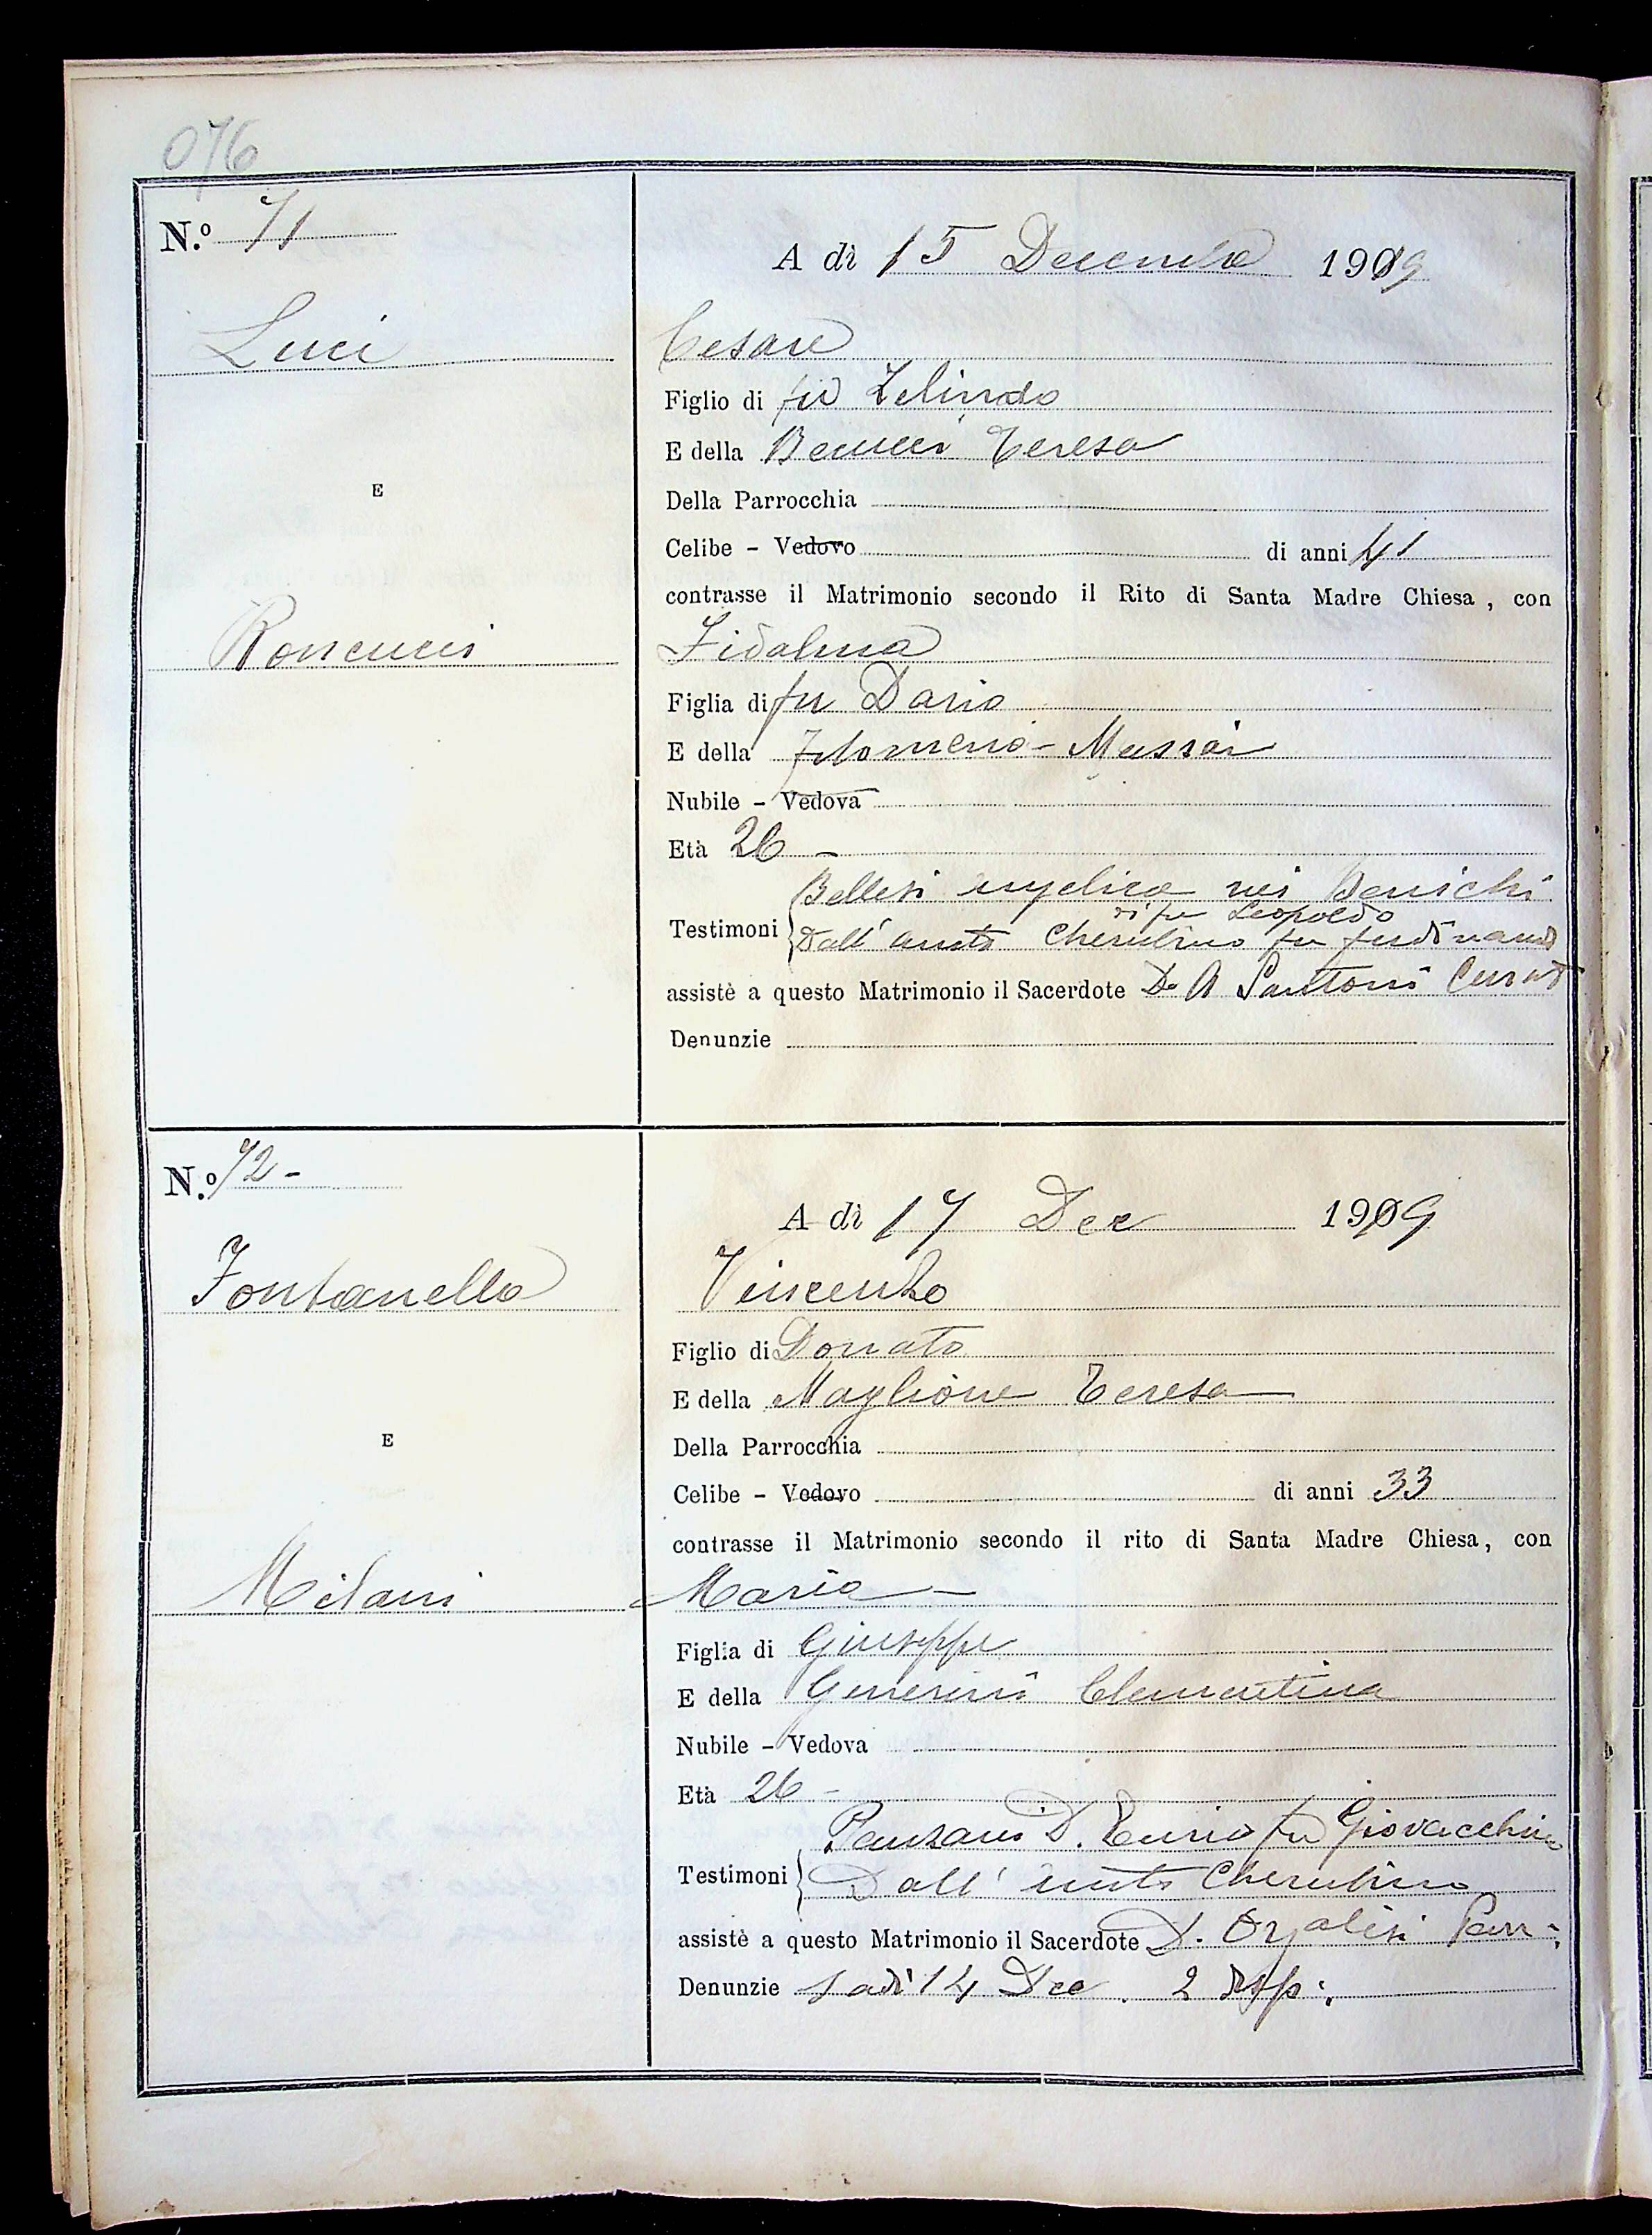 076
N.º 71
A dì 15 Decembre 1909
Luci
Cesare
Figlio di fu Zelindo
E della Benucci Teresa
Della Parrocchia
E
Celibe - Vedovo di anni 41
contrasse il Matrimonio secondo il Rito di Santa Madre Chiesa, con
Roncucci
Fidalma
Figlia di fu Dario
E della Filomena - Massai
Nubile - Vedova
Età 26 -
Bellesi nei Benichi
di fu Leopoldo
Testimoni Dall' Cherubino fu
assistè a questo Matrimonio il Sacerdote D. A Santoni Curato
Denunzie
N.º 72 -
A dì 17 Dec 1909
Fontanella
Vincenzo
Figlio di Donato
E della Maglione Teresa
Della Parrocchia
E
Celibe - Vedovo di anni 33
contrasse il Matrimonio secondo il rito di Santa Madre Chiesa, con
Milani
Maria -
Figlia di Giuseppe
E della Clementina
Nubile - Vedova
Età 26 -
Panzani D. fu Giovacchino
Testimoni Dall' Cherubino
assistè a questo Matrimonio il Sacerdote D. Parr:
Denunzie 1 adì 14 Dec. 2